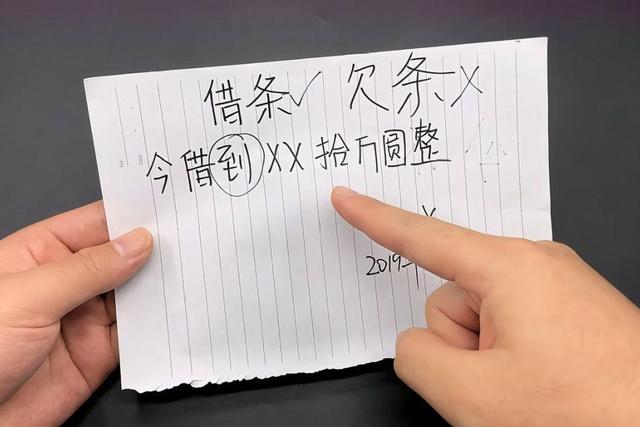 借条✓ 欠条X
今借到XX拾万圆整
X
2019年